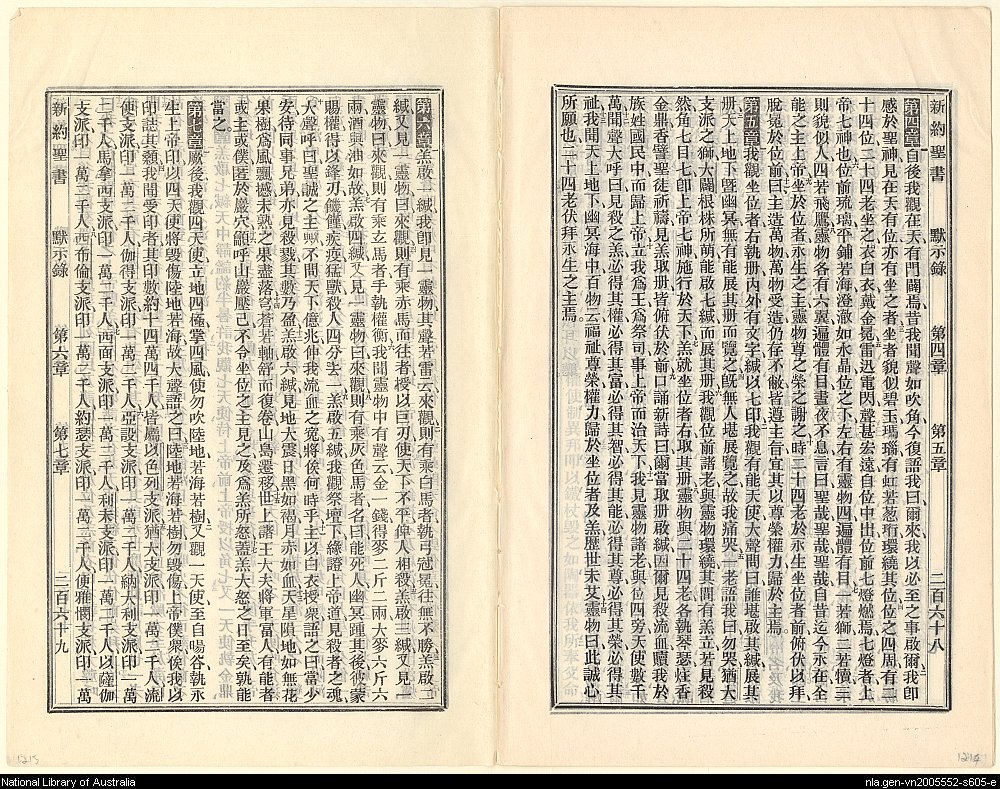 新約聖書　默示錄　第四章　第五章　二百六十八
第四章自後我觀在天有門闢焉昔我聞聲如吹角今復語我曰爾來我以必至之事啟爾我卽
感於聖神見在天有位亦有坐之者坐者貌似碧玉瑪瑙有虹若葱珩環繞其位位之四周有二
十四位二十四老坐之衣白衣戴金冕雷迅電閃聲甚宏遠自位中出位前七燈燃焉七燈者上
帝七神也位前琉璃平鋪若海澄澈如水晶位之下左右有靈物四遍體有目一若獅二若犢三
則貌似人四若飛鷹靈物各有六翼遍體有目晝夜不息言曰聖哉聖哉聖哉自昔迄今永在全
能之主上帝坐於位者永生之主靈物尊之榮之謝之時二十四老於永生坐位者前俯伏以拜
脫冕於位前曰主造萬物萬物受造仍存不敝皆遵主旨宜其以尊榮權力歸於主焉
第五章我觀坐位者右執册內外有文字緘以七印我觀有能天使大聲問曰誰堪啟其緘展其
册天上地下暨幽冥無有能展其册而覽之旣無人堪展覽之故我痛哭一老語我曰勿哭猶大
支派之獅大闢根株所萌能啟七緘而展其册我觀位前諸老與靈物環繞其間有羔立若見殺
然角七目七卽上帝七神施行於天下羔就坐位者右取其册靈物與二十四老各執琴瑟炷香
金鼎香譬聖徒祈禱見羔取册皆俯伏於前口誦新詩曰爾當取册啟緘因爾見殺流血贖我於
族姓國民中而歸上帝立我爲王爲祭司事上帝而治天下我見靈物諸老與位四旁天使數千
萬聞聲大呼曰見殺之羔必得其權必得其富必得其智必得其能必得其尊必得其榮必得其
祉我聞天上地下幽冥海中百物云福祉尊榮權力歸於坐位者及羔歷世未艾靈物曰此誠心
所願也二十四老伏拜永生之主焉
第六章羔啟一緘我卽見一靈物其聲若雷云來觀則有乘白馬者執弓冠冕往無不勝羔啟二
緘又見一靈物曰來觀則有乘赤馬而往者授以巨刃使天下不平俾人相殺羔啟三緘又見一
靈物曰來觀則有乘玄馬者手執權衡我聞靈物中有聲云金一錢得麥二斤二兩大麥六斤六
兩酒與油如故羔啟四緘又見一靈物曰來觀則有乘灰色馬者名曰能死人幽冥踵其後彼蒙
賜權得以鋒刃饑饉疾疫猛獸殺人四分去一羔啟五緘我觀祭壇下緣證上帝道見殺者之魂
大聲呼曰聖誠之主不問天下億兆伸我流血之冤將俟何時乎主以白衣授衆語之曰當少
安待同事兄弟亦見殺戮其數乃盈羔啟六緘見地大震日黑如褐月赤如血天星隕地如無花
果樹爲風飄撼未熟之果盡落穹蒼若軸舒而復卷山島遷移世上諸王大夫將軍富人有能者
或主或僕匿於巖穴籲呼山巖壓己不令坐位之主見之及爲羔所怒蓋羔大怒之日至矣孰能
當之
第七章厥後我觀四天使立地四極掌四風使勿吹陸地若海若樹又觀一天使至自暘谷執永
生上帝印以四天使將毀傷陸地若海故大聲語之曰陸地若海若樹勿毀傷上帝僕衆俟我以
印誌其顙我聞受印者其印數約十四萬四千人皆屬以色列支派猶大支派印一萬二千人流
便支派印一萬二千人伽得支派印一萬二千人亞設支派印一萬二千人納大利支派印一萬
二千人馬拿西支派印一萬二千人西面支派印一萬二千人利未支派印一萬二千人以薩伽
支派印一萬二千人西布倫支派印一萬二千人約瑟支派印一萬二千人便雅憫支派印一萬
新約聖書　默示錄　第六章　第七章　二百六十九
1215
1214
National Library of Australia
nla.gen-vn2005552-s605-e